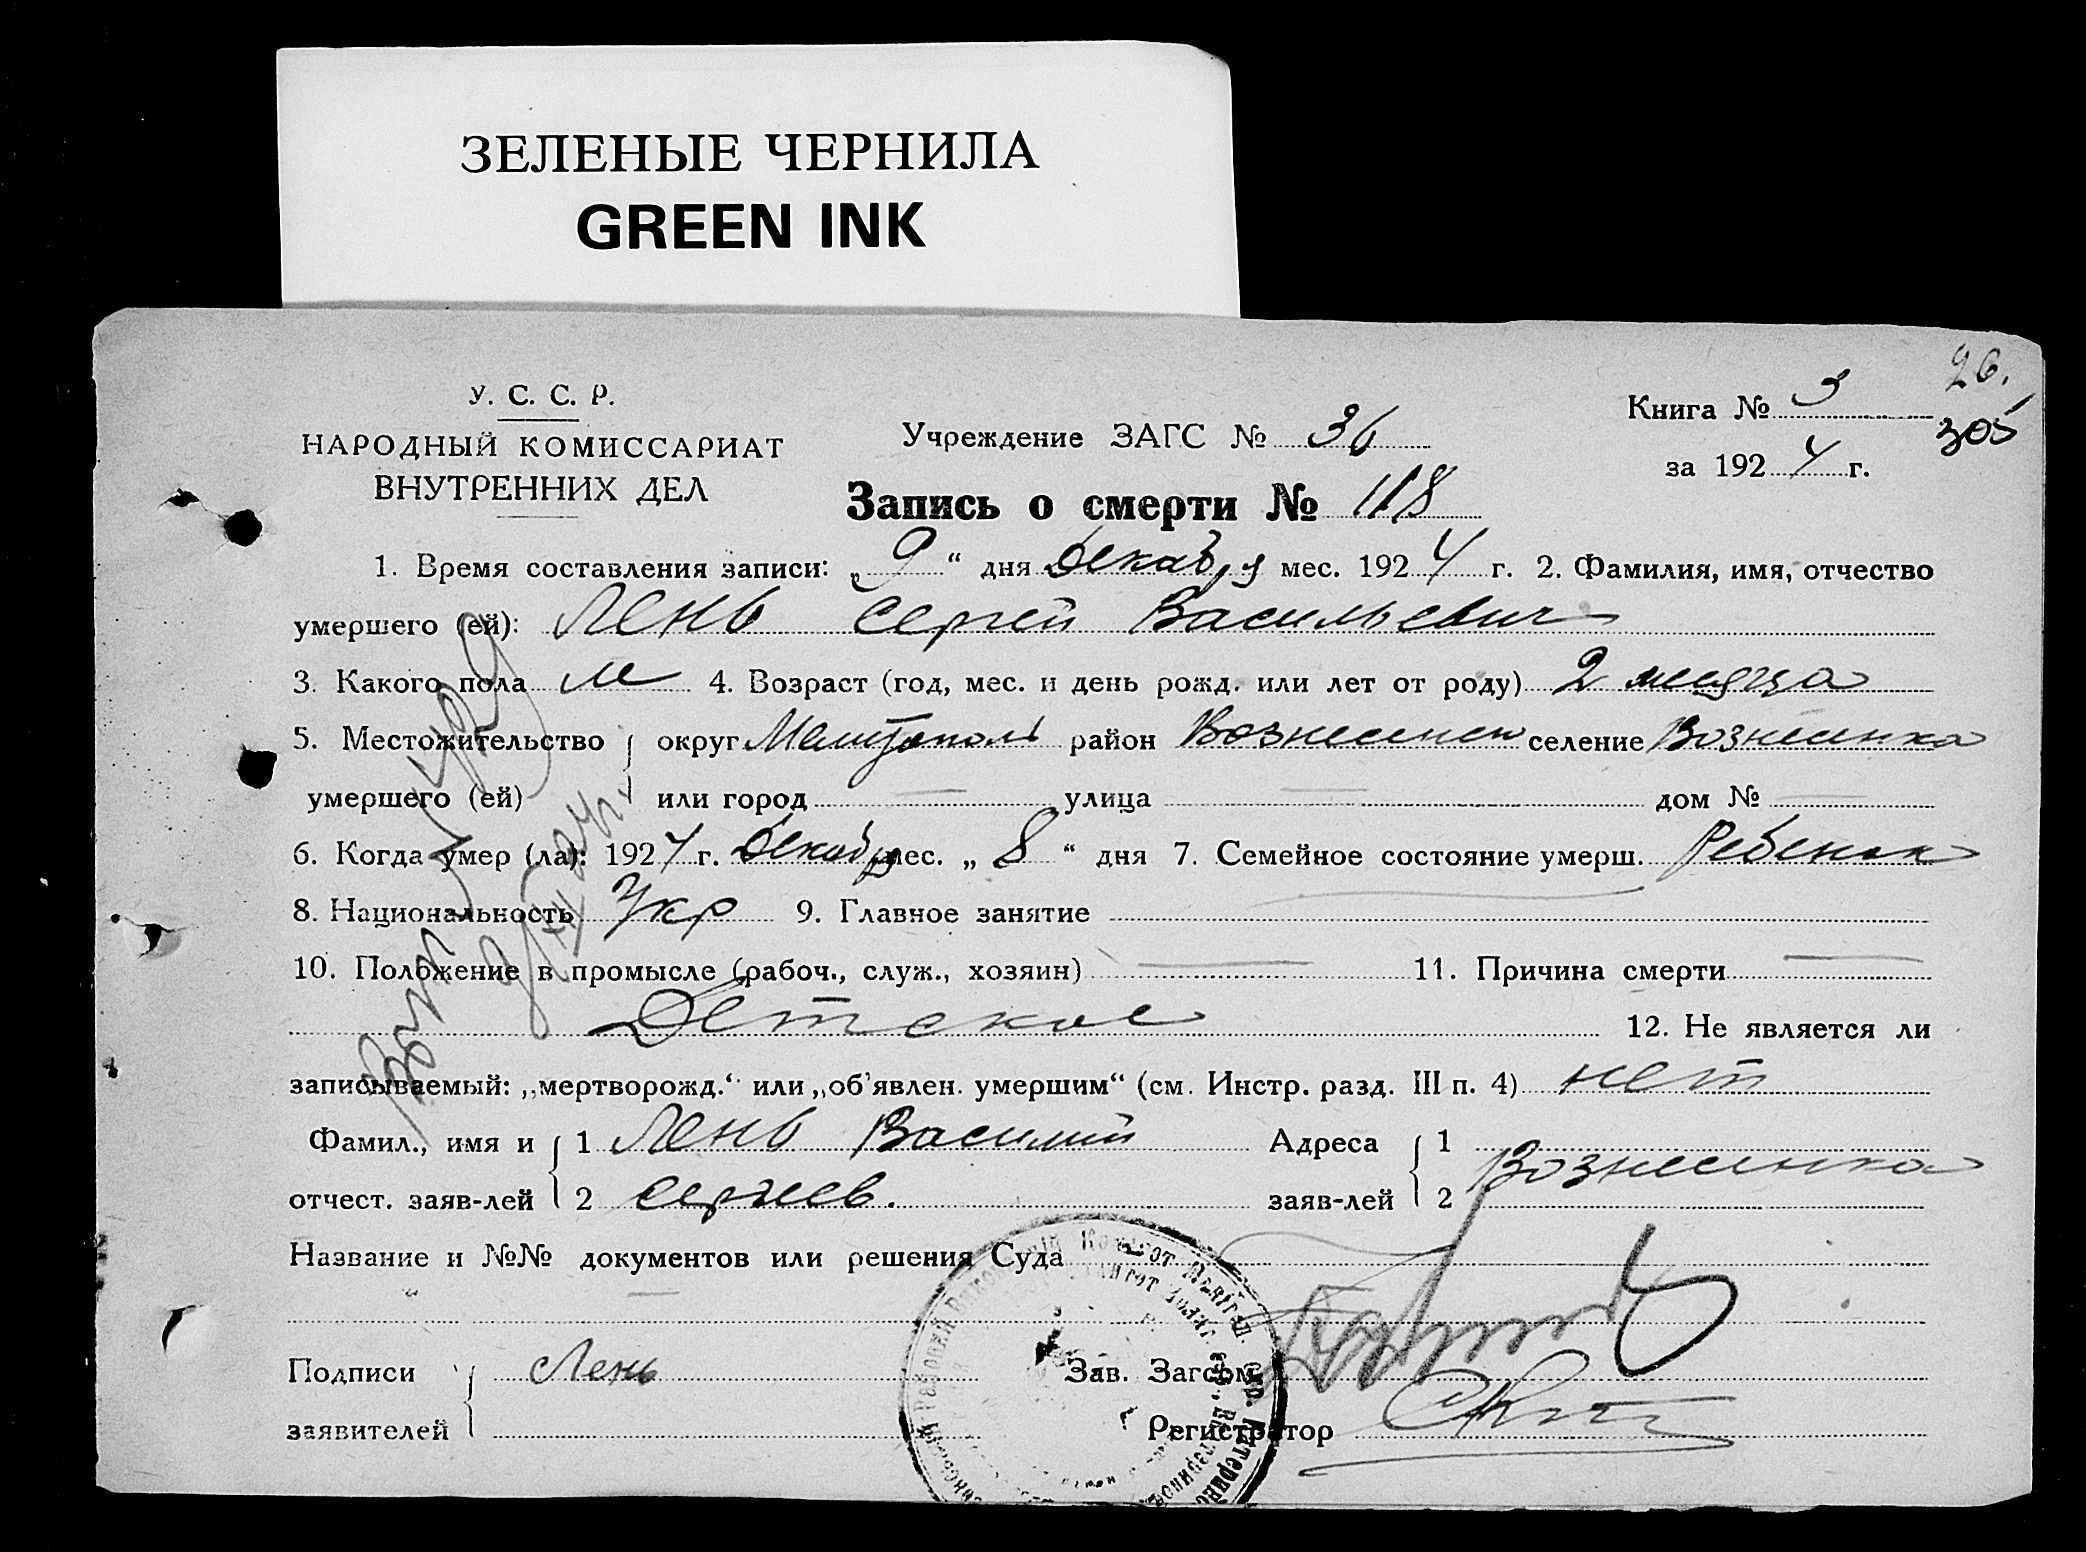 ЗЕЛЕНЫЕ ЧЕРНИЛА
GREEN INK
26.
305
У. С. С. Р.
НАРОДНЫЙ КОМИССАРИАТ
ВНУТРЕННИХ ДЕЛ
Учреждение ЗАГС № 36
Книга № 3
за 1924 г.
Запись о смерти № 118
1. Время составления записи: „9“ дня Декабря мес. 1924 г. 2. Фамилия, имя, отчество
умершего (ей): Лень Сергей Васильевич
3. Какого пола м 4. Возраст (год, мес. и день рожд. или лет от роду) 2 месяца
5. Местожительство округ Мелитополь район Вознесенск селение Вознесенка
умершего (ей) или город — улица — дом № —
6. Когда умер (ла): 1924 г. Декабр мес. „8“ дня 7. Семейное состояние умерш. Ребенок
8. Национальность Укр 9. Главное занятие
10. Положение в промысле (рабоч., служ., хозяин) — 11. Причина смерти —
Детское 12. Не является ли
записываемый: „мертворожд.“ или „об'явлен. умершим“ (см. Инстр. разд. III п. 4) нет
Фамил., имя и 1 Лень Василий Адреса 1
отчест. заяв-лей 2 Сергеев. заяв-лей 2 Вознесенка
Название и №№ документов или решения Суда
Подписи Лень Зав. Загсом
заявителей Регистратор